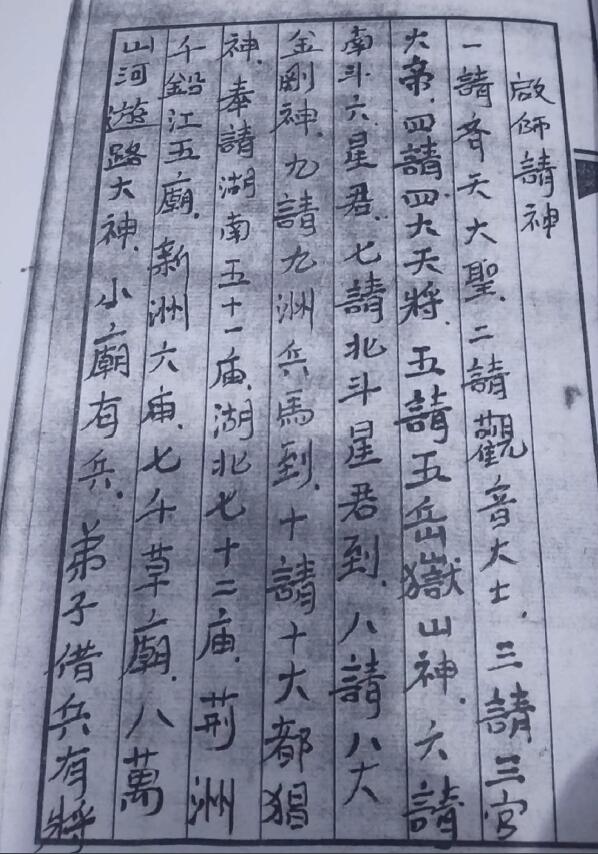 啟師請神
一請齊天大聖.二請觀音大士.三請三官
大帝.四請四大天將.五請五岳嶽山神.六請
南斗六星君.七請北斗星君到.八請八大
金剛神.九請九洲兵馬到.十請十大都猖
神.奉請湖南五十一庙.湖北七十二庙.荊洲
千鉛江五廟.新洲六庙.七千草廟.八萬
山河遊路大神.小廟有兵.弟子借兵有將